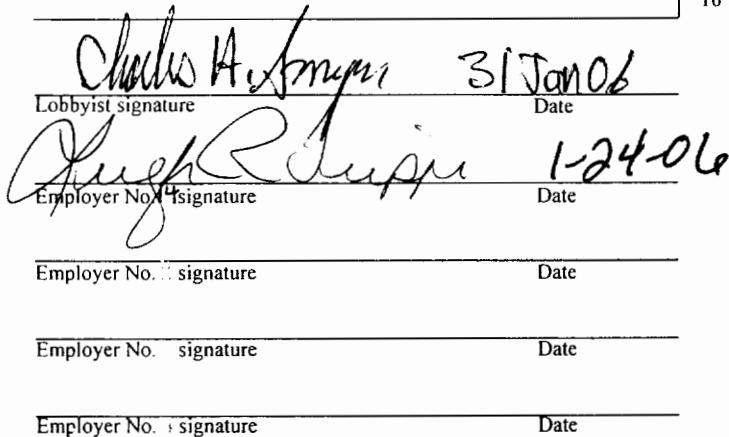 16
Charles H. 31 Jan 06
Lobbyist signature Date
Hugh R 1-24-06
Employer No. 4 signature Date
Employer No. signature Date
Employer No. signature Date
Employer No. signature Date